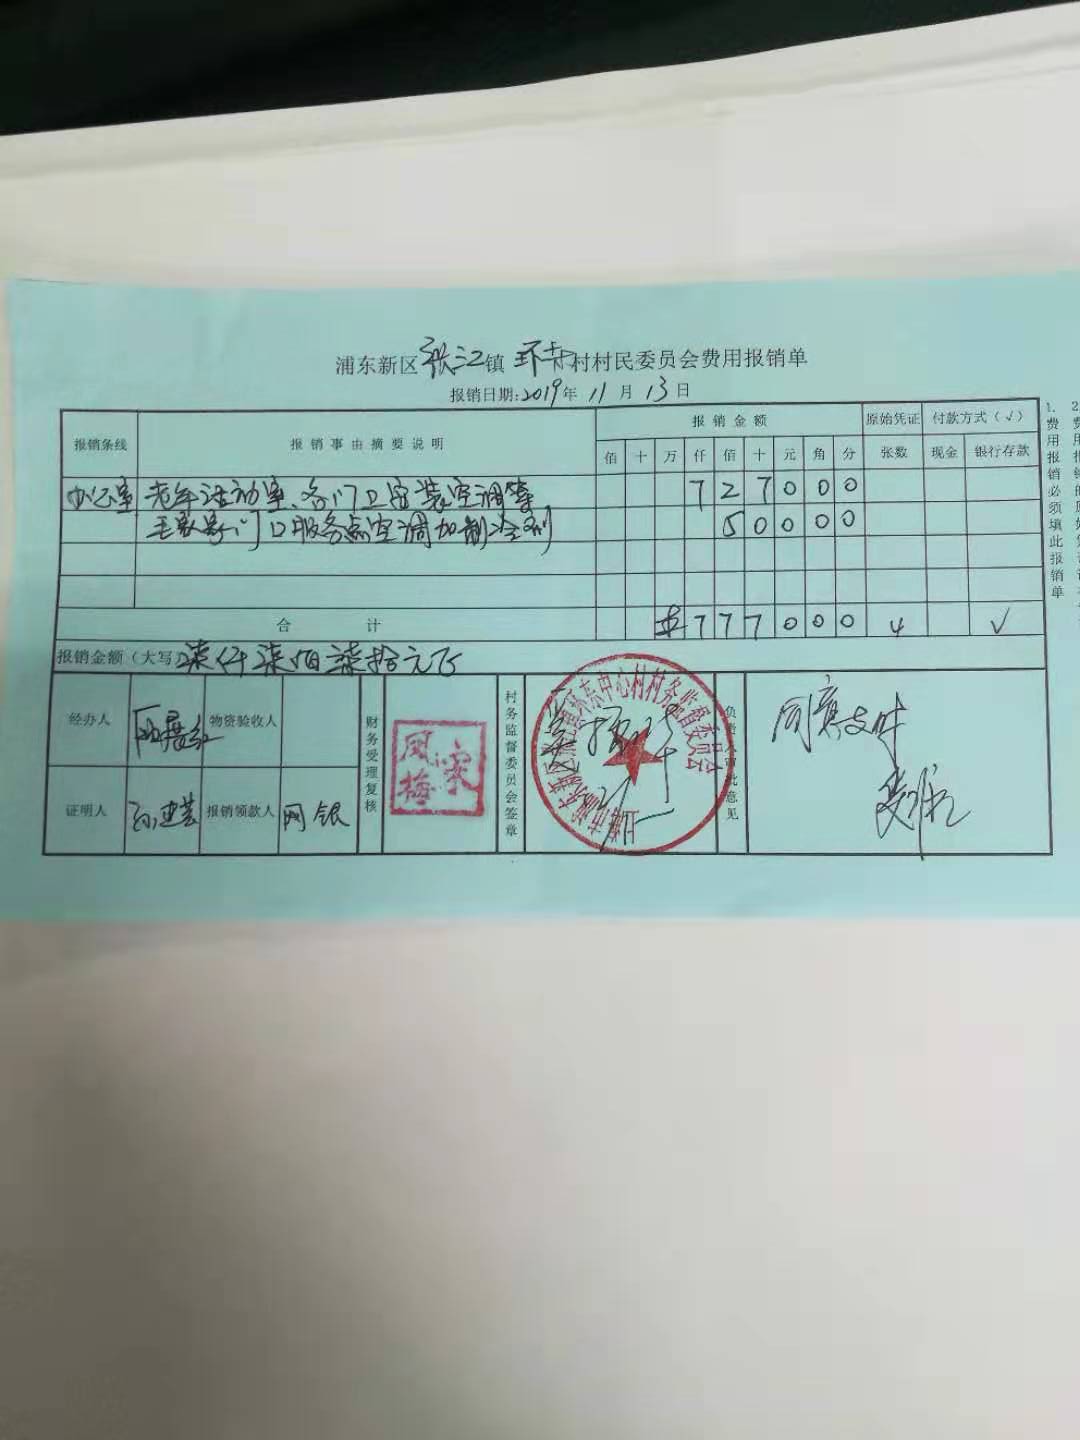 浦东新区张江镇环东村村民委员会费用报销单
报销日期:2019年11月13日
报销条线 报销事由摘要说明 报销金额 原始凭证 付款方式(√)
佰 十 万 仟 佰 十 元 角 分 张数 现金 银行存款
办公室 老年活动室、各门卫室装空调等 7 2 7 0 0 0
毛家家门口服务点空调加制冷剂 5 0 0 0 0
合计 ¥ 7 7 7 0 0 0 4 √
报销金额(大写) 柒仟柒佰柒拾元正
经办人 物资验收人
证明人 孙建芸 报销领款人 网银
财务受理复核
村务监督委员会签章
环东中心村村务监督委员会
负责人审批意见
同意支付
1.
费用报销必须填此报销单
2